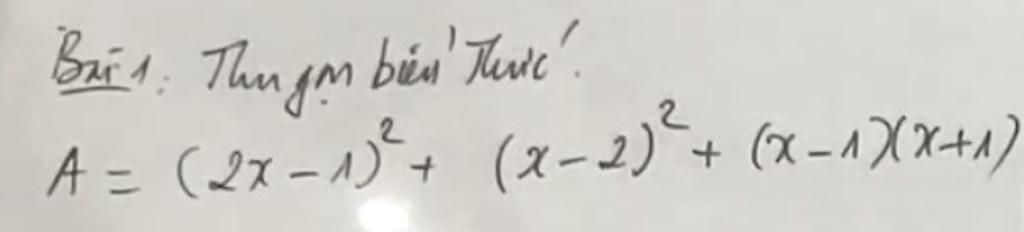 Bài 1: Thu gọn biểu thức:
A = (2x - 1)² + (x - 2)² + (x - 1)(x + 1)